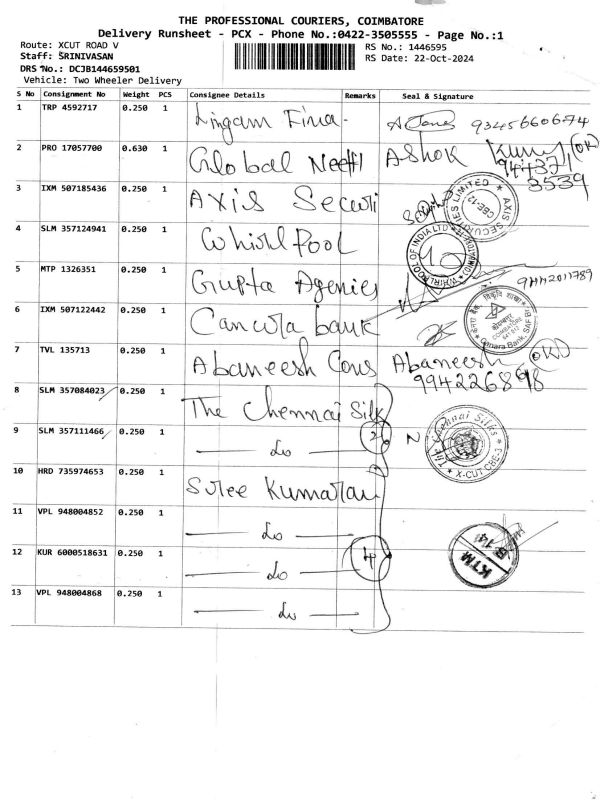 THE PROFESSIONAL COURIERS, COIMBATORE
Delivery Runsheet - PCX - Phone No.:0422-3505555 - Page No.:1
Route: XCUT ROAD V
RS No.: 1446595
Staff: SRINIVASAN
RS Date: 22-Oct-2024
DRS No.: DCJB144659501
Vehicle: Two Wheeler Delivery
S No Consignment No Weight PCS Consignee Details Remarks Seal & Signature
1 TRP 4592717 0.250 1 Lingam Fina- 9345660674
2 PRO 17057700 0.630 1 Global Ashok Kumar (OK)
944371
3539
3 IXM 507185436 0.250 1 Axis Securi
AXIS SECURITIES LIMITED ★ CBE-12 ★
4 SLM 357124941 0.250 1 Whirl Pool
WHIRLPOOL OF INDIA LTD 10
5 MTP 1326351 0.250 1 Gupta Agenies 9442011789
6 IXM 507122442 0.250 1 Canara bank
COIMBATORE
Canara Bank,
7 TVL 135713 0.250 1 Abaneesh Cons Abaneesh (OK)
8 SLM 357084023 0.250 1 The Chennai Silk
9 SLM 357111466 0.250 1 do 2 N
The Chennai Silks ★ X-CUT CBE-3 ★
10 HRD 735974653 0.250 1 Sree Kumaran
11 VPL 948004852 0.250 1 do
12 KUR 6000518631 0.250 1 do 4
KTM
13 VPL 948004868 0.250 1 do